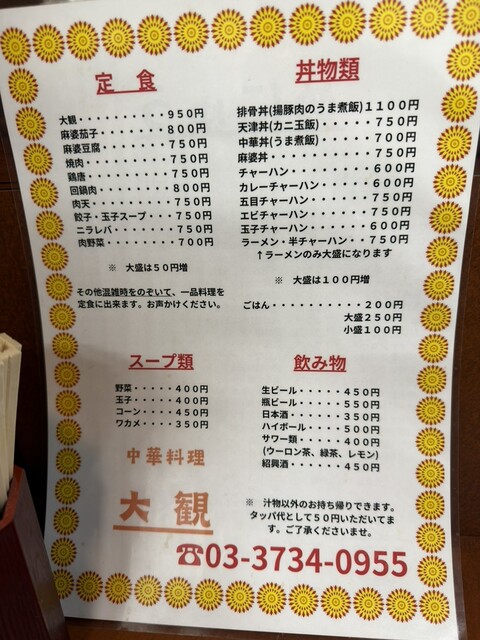 定　食
大観・・・・・・・・・・９５０円
麻婆茄子・・・・・・・・８００円
麻婆豆腐・・・・・・・・７５０円
焼肉・・・・・・・・・・７５０円
鶏唐・・・・・・・・・・７５０円
回鍋肉・・・・・・・・・８００円
肉天・・・・・・・・・・７５０円
餃子・玉子スープ・・・・７５０円
ニラレバ・・・・・・・・７５０円
肉野菜・・・・・・・・・７００円
※　大盛は５０円増
その他混雑時をのぞいて、一品料理を
定食に出来ます。お声かけください。
丼物類
排骨丼(揚豚肉のうま煮飯)１１００円
天津丼(カニ玉飯)・・・・・７５０円
中華丼(うま煮飯)・・・・・７００円
麻婆丼・・・・・・・・・・７５０円
チャーハン・・・・・・・・６００円
カレーチャーハン・・・・・６００円
五目チャーハン・・・・・・７５０円
エビチャーハン・・・・・・７５０円
玉子チャーハン・・・・・・６００円
ラーメン・半チャーハン・・７５０円
↑ラーメンのみ大盛になります
※　大盛は１００円増
ごはん・・・・・・・・・・２００円
大盛２５０円
小盛１００円
スープ類
野菜・・・・・４００円
玉子・・・・・４００円
コーン・・・・４５０円
ワカメ・・・・３５０円
飲み物
生ビール・・・・・４５０円
瓶ビール・・・・・５５０円
日本酒・・・・・・３５０円
ハイボール・・・・５００円
サワー類・・・・・４００円
(ウーロン茶、緑茶、レモン)
紹興酒・・・・・・４５０円
中華料理
大観
※　汁物以外のお持ち帰りできます。
タッパ代として５０円いただいてま
す。ご了承くださいませ。
☎03-3734-0955